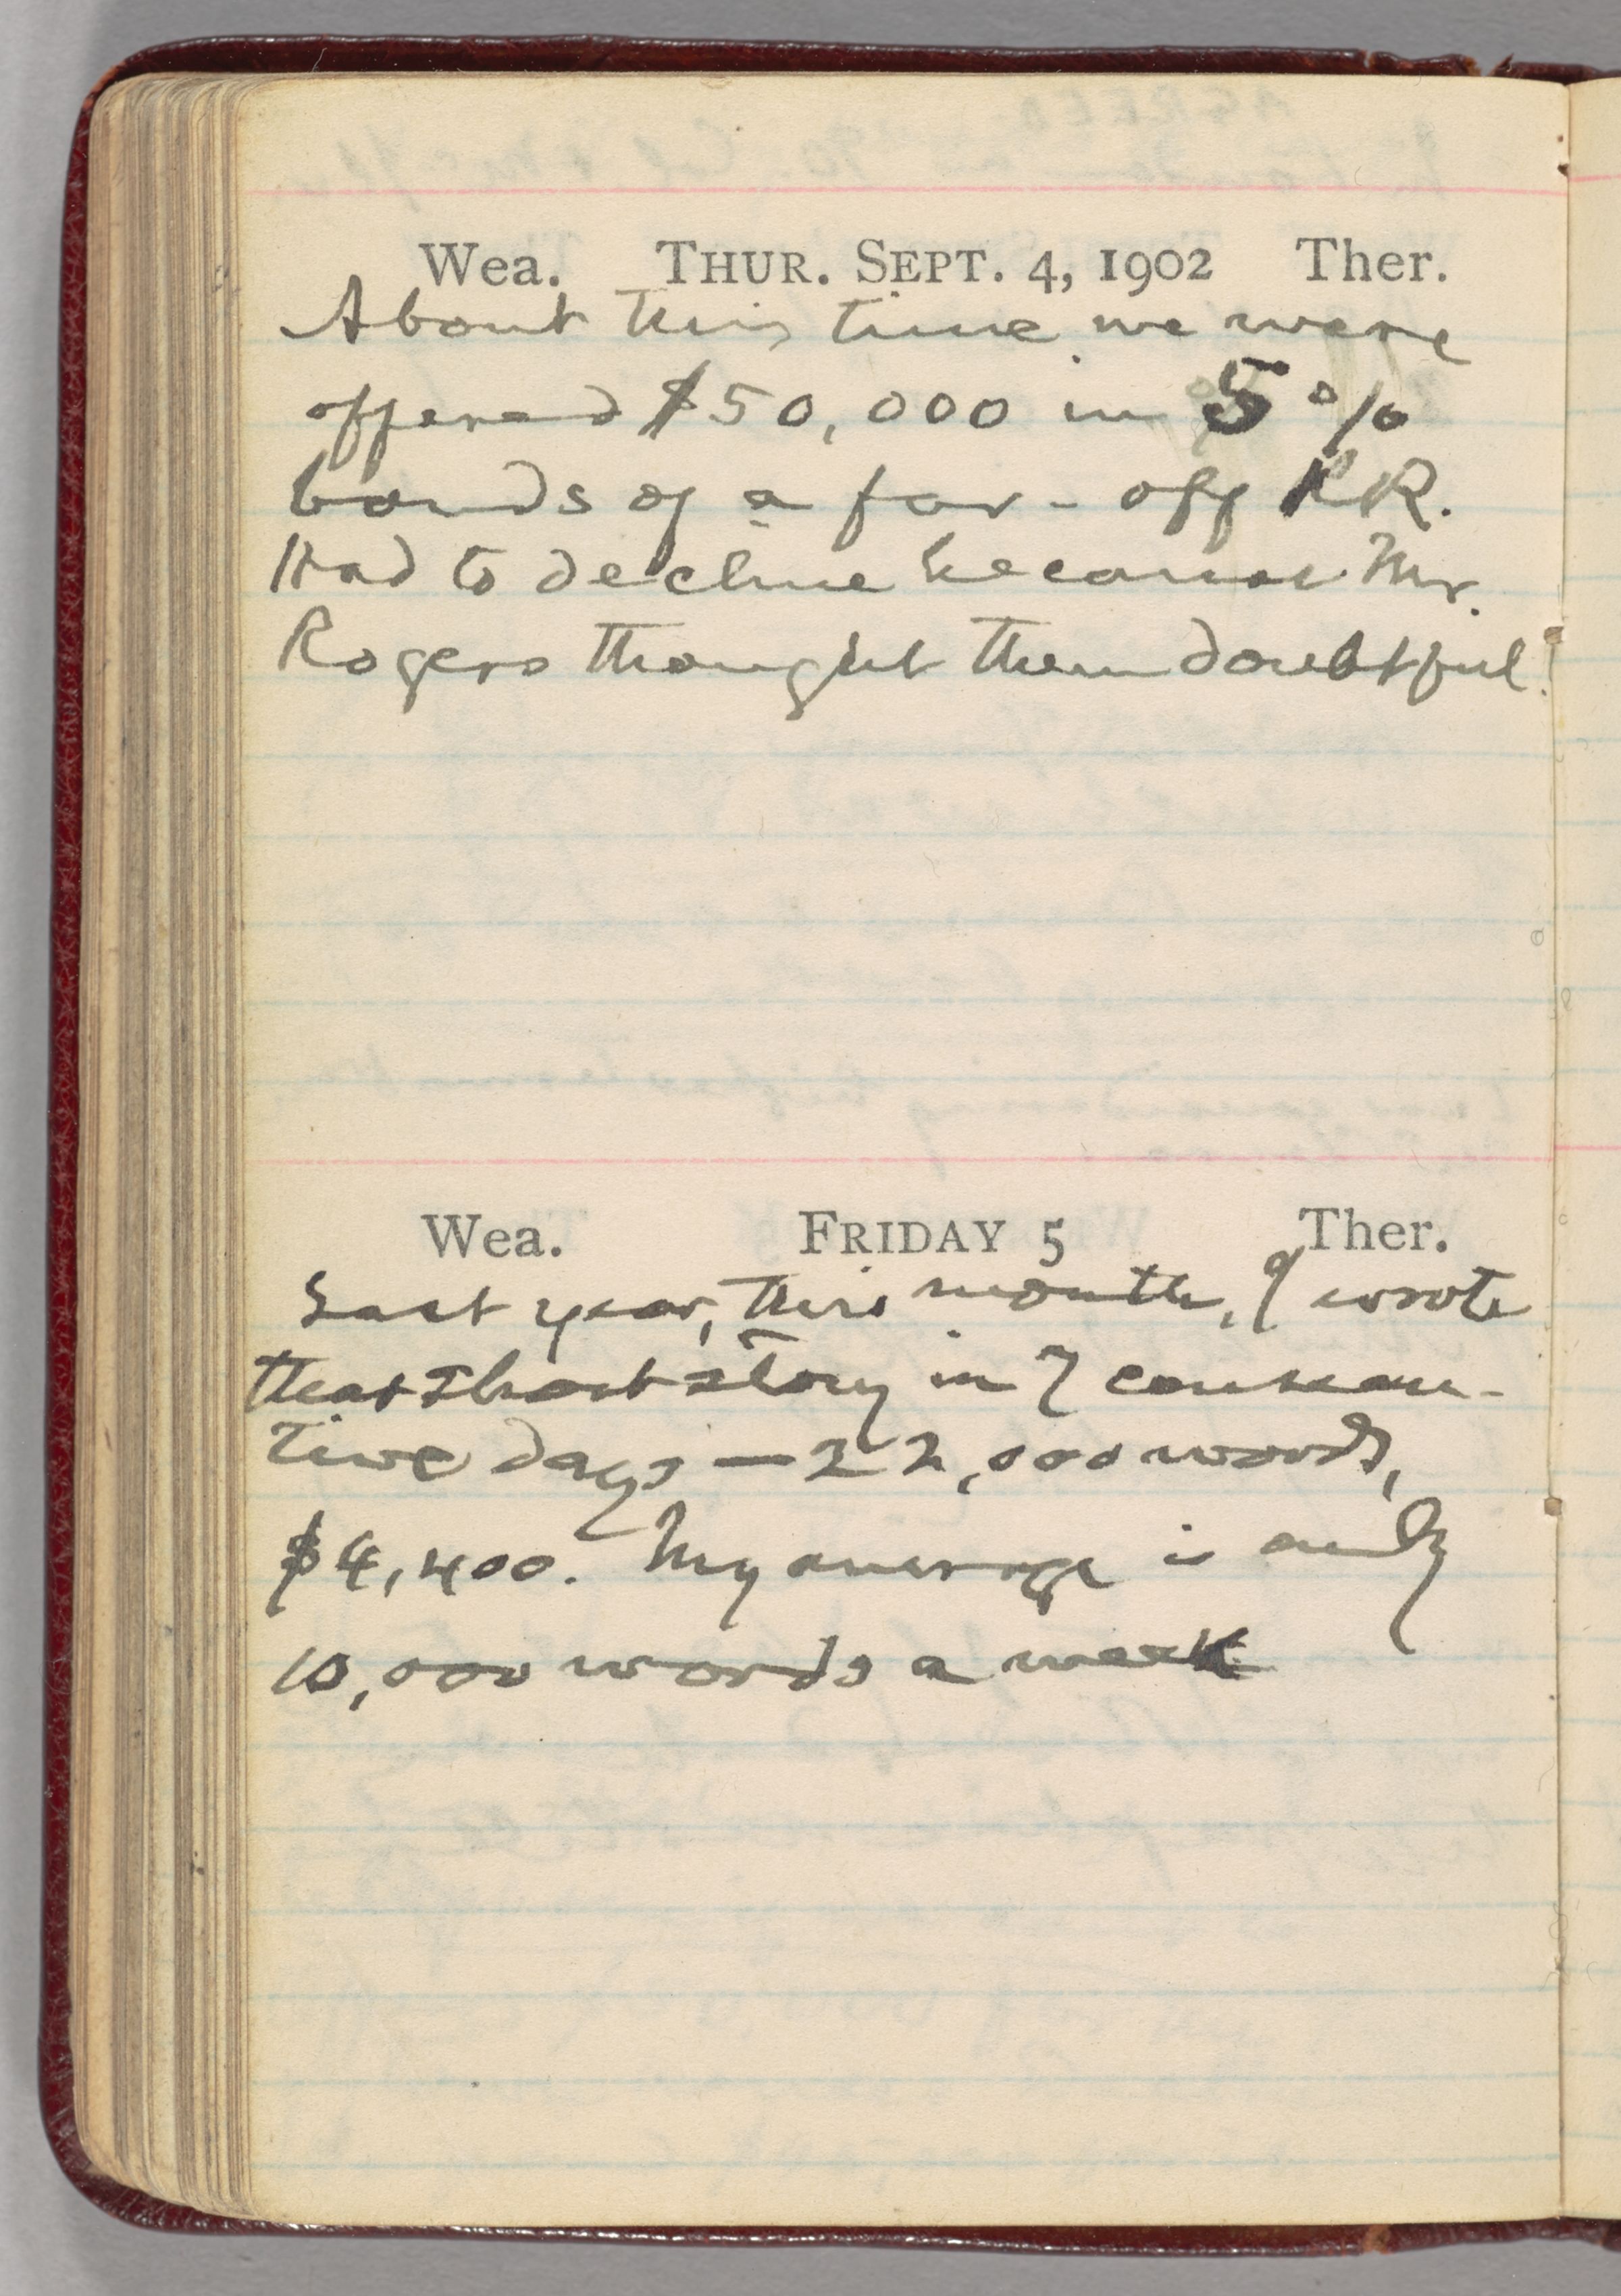 Wea. THUR. SEPT. 4, 1902 Ther.
About this time we were
offered $50,000 in 5%
bonds of a far-off RR.
Had to decline because Mr.
Rogers thought them doubtful.
Wea. FRIDAY 5 Ther.
Last year, this month, I wrote
that short story in 7 consecu-
tive days — 22,000 words,
$4,400. My average is only
10,000 words a week